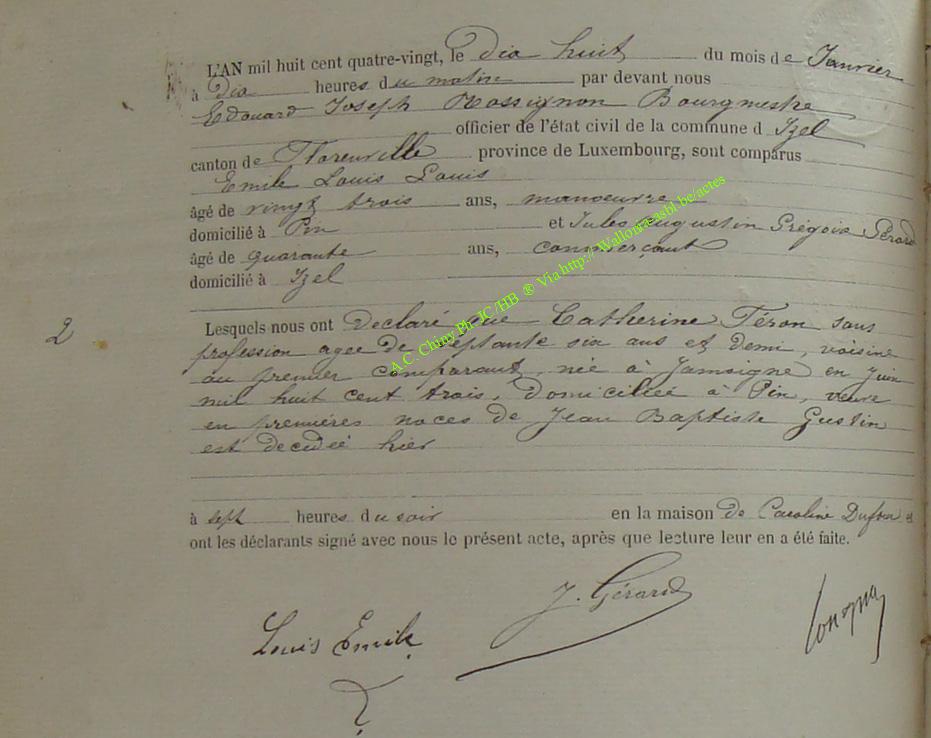 L'AN mil huit cent quatre-vingt, le dix huit du mois de Janvier
à Dix heures du matin par devant nous
Edouard Joseph Rossignon Bourgmestre
officier de l'état civil de la commune d Izel
canton de Florenville province de Luxembourg, sont comparus
Emile Louis Louis
âgé de vingt trois ans, manoeuvre
domicilié à Pin et Jules Augustin Grégoire Gérard
âgé de quarante ans, commerçant
domicilié à Izel
2
Lesquels nous ont Declaré que Catherine Féron sans
profession agee de septante six ans et demi, voisine
au premier comparant, née à Jamoigne en Juin
mil huit cent trois, domiciliée à Pin, veuve
en premières noces de Jean Baptiste Gustin
est decedée hier
à sept heures du soir en la maison de Caroline et
ont les déclarants signé avec nous le présent acte, après que lecture leur en a été faite.
J. Gérard
Louis Emile
A.C. Chiny Ph. JC/HB ® Via http://Wallonia-asbl.be/actes